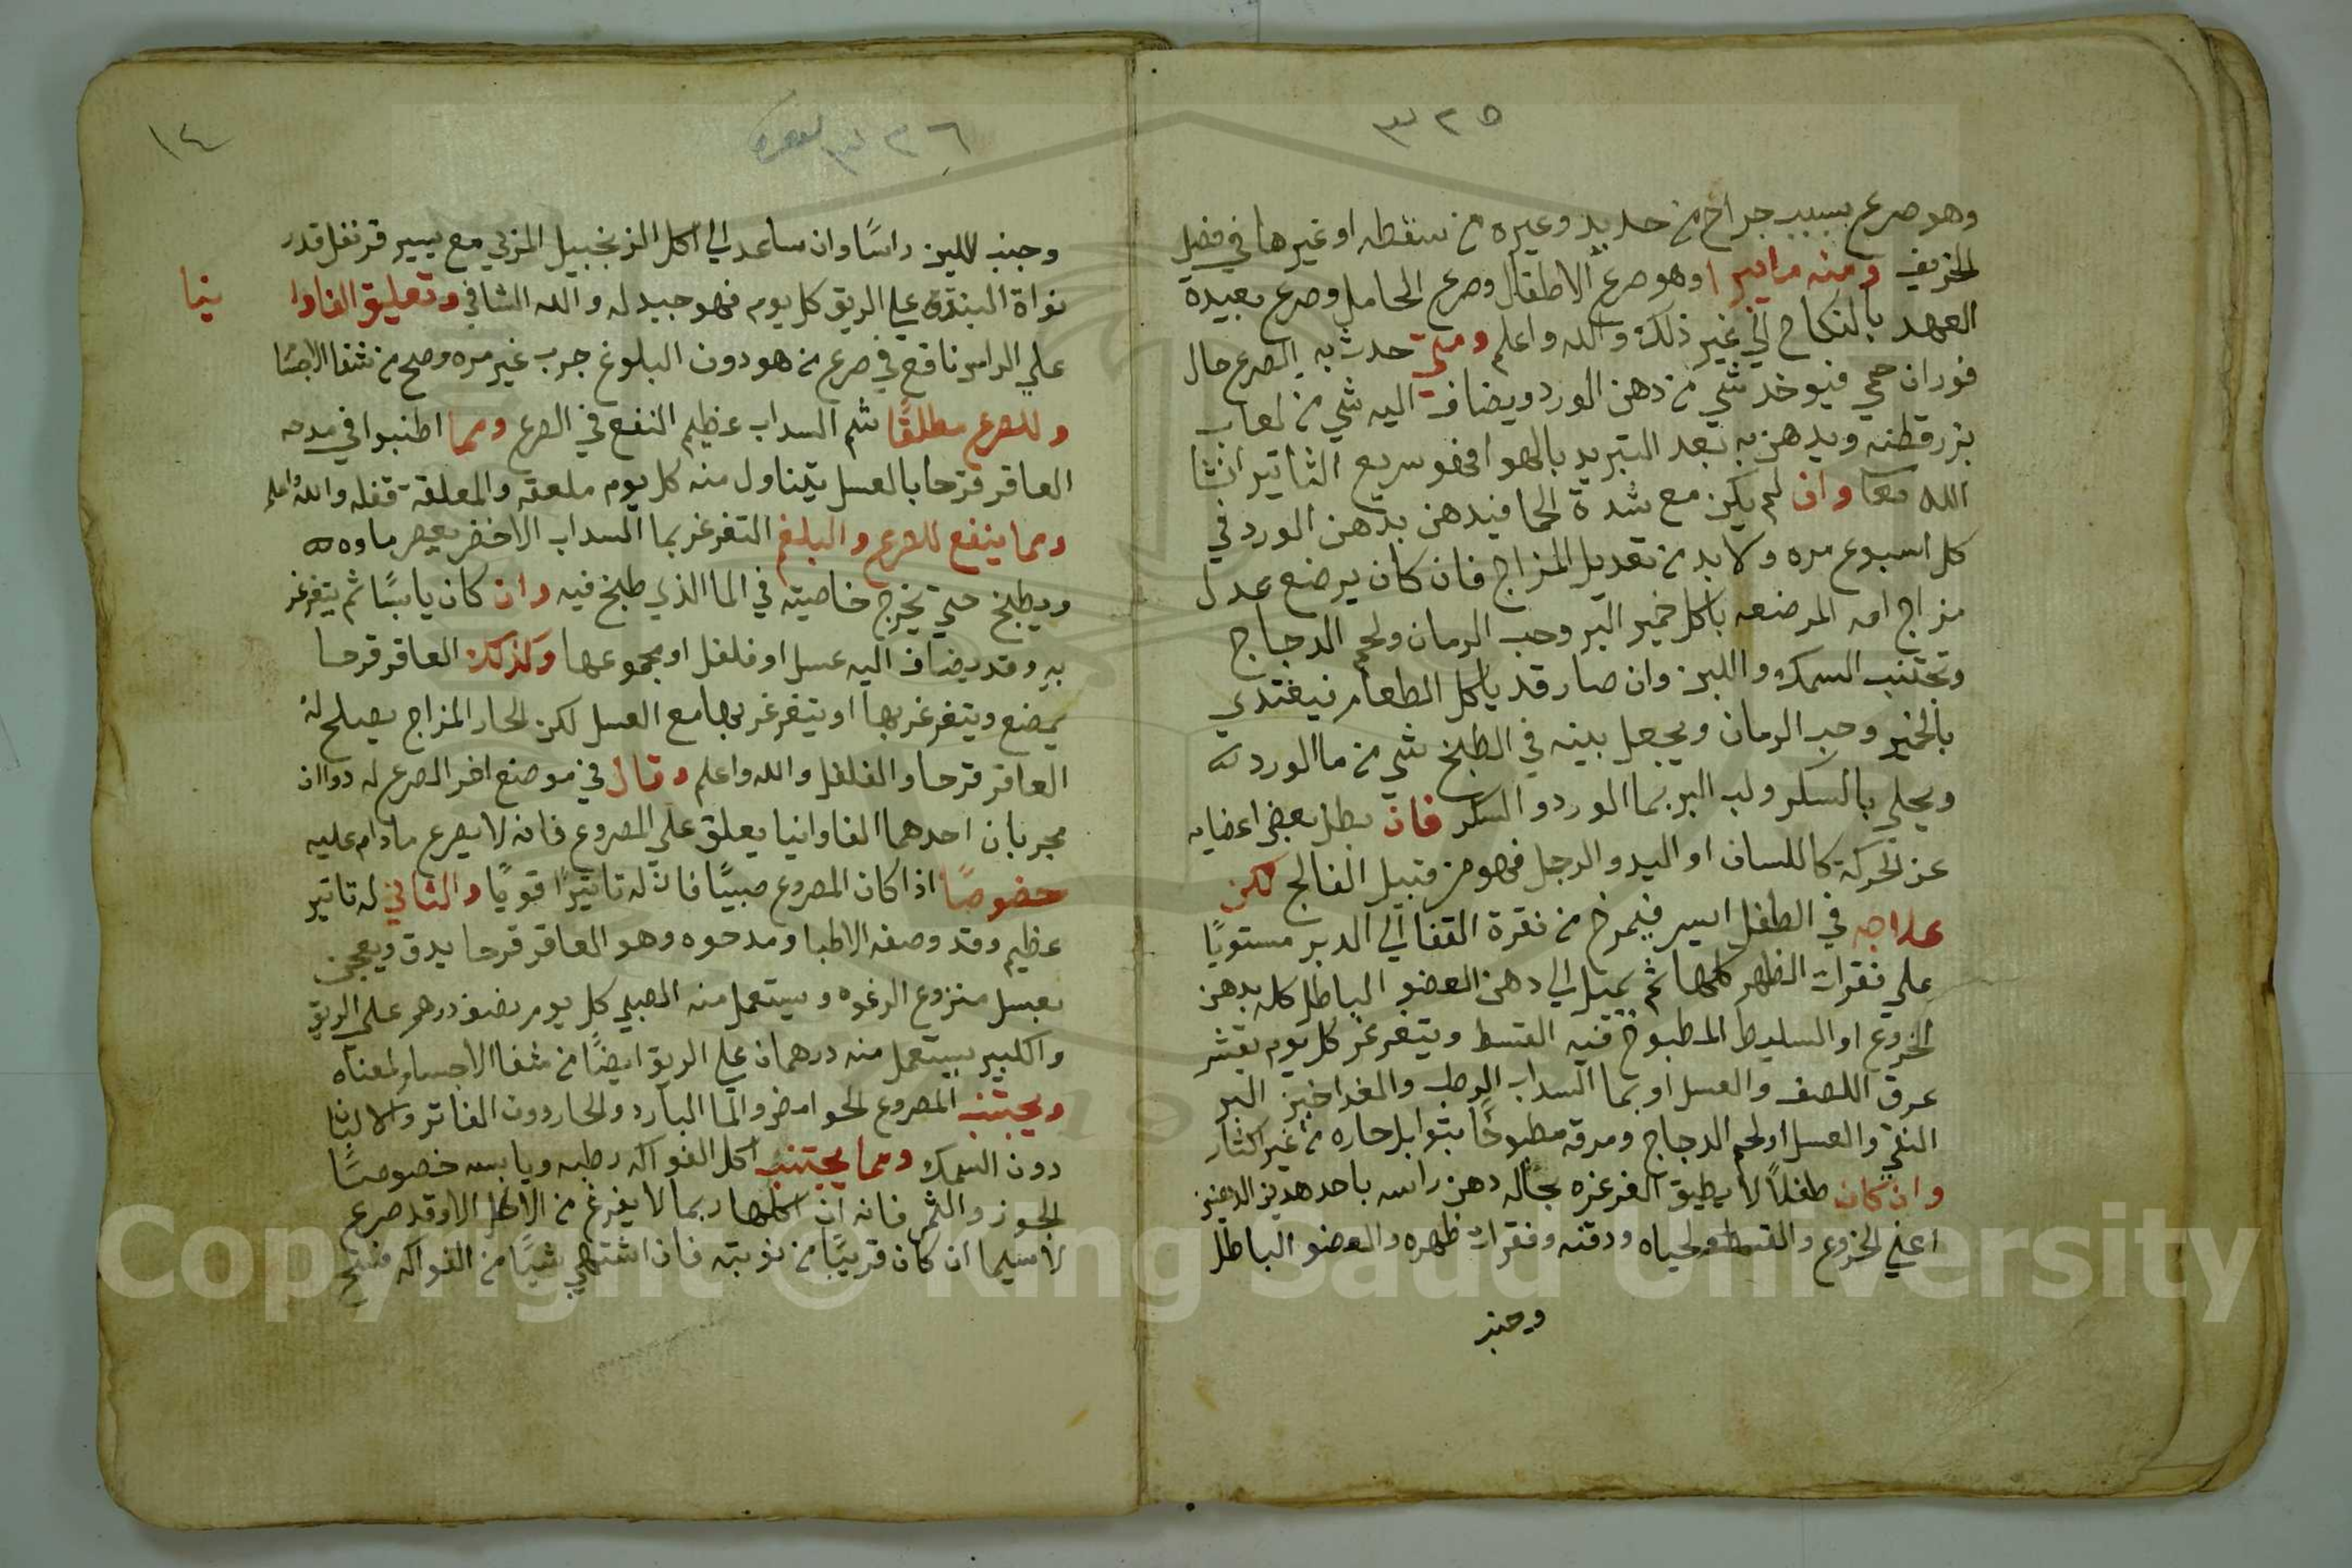 ٣٢٥
وهو صرع بسبب جراح من حديد وغيره من سقطه او غيرها في فصل
الخريف ومنه مراتب ا وهو صرع الاطفال وصرع الحامل وصرع بعيدة
العهد بالنكاح الي غير ذلك والله واعلم ومتي حدث به الصرع حال
فوران حمي فيوخذ شي من دهن الورد ويضاف اليه شي من لعاب
بزرقطنه ويدهن به بعد التبريد بالهوا فهو سريع التاثير انشا
الله تعا وان لم يكن مع شدة الحما فيدهن بدهن الورد في
كل اسبوع مره ولا بد من تعديل المزاج فان كان يرضع عدل
مزاج امه المرضعه باكل خمير البر وحب الرمان ولحم الدجاج
وتجتنب السمك واللبن وان صار قد ياكل الطعام فيغتدي
بالخمير وحب الرمان ويجعل بينه في الطبخ شي من ما الورد
ويحلي بالسكر ولب البر بما الورد والسكر فان بطل بعض اعضايه
عن الحركة كاللسان او اليد والرجل فهو من قبيل الفالج لكن
علاجه في الطفل ايسر فيمرخ من نقرة القفا الي الدبر مستويًا
علي فقرات الظهر كلها ثم يميل الي دهن العضو الباطل كله بدهن
الخروع او السليط المطبوخ فيه القسط ويتغرغر كل يوم بقشر
عرق اللصف والعسل او بما السداب الرطب والغدا خبز البر
النقي والعسل او لحم الدجاج ومرقه مطبوخًا بتوابل حاره من غير اكثار
وان كان طفلاً لا يطيق الغرغره بحاله دهن راسه باحد هذين الدهنين
اعني الخروع والقسط ولحياه ودقنه وفقرات ظهره والعضو الباطل
وجنب
١٤
٣٢٦
وجنب اللبن راسًا وان ساعد الي اكل الزنجبيل المربي مع يسير قرنفل قدر
نواة البندق علي الريق كل يوم فهو جيد له والله الشافي وتعليق الفاوا نيا
علي الراس نافع في صرع من هو دون البلوغ جرب غير مره وصح من شفا الاجسا
وللصرع مطلقًا شم السداب عظيم النفع في الصرع ومما اطنبوا في مدحه
العاقر قرحا بالعسل يتناول منه كل يوم ملعقه والمعلقة قفله والله اعلم
ومما ينفع للصرع والبلغم التغرغر بما السداب الاخضر يعصر ماوه
ويطبخ حتي تخرج خاصيته في الما الذي طبخ فيه وان كان يابسًا ثم يتغرغر
به وقد يضاف اليه عسل او فلفل او مجموعها وكذلك العاقر قرحا
يمضغ ويتغرغر بها او يتغرغر بها مع العسل لكن الحار المزاج يصلح له
العاقر قرحا والفلفل والله واعلم وقال في موضع اخر الصرع له دواان
مجربان احدهما الفاوانيا يعلق علي المصروع فانه لا يصرع ما دام عليه
خصوصًا اذا كان المصروع صبيًا فان له تاثيرًا قويًا والثاني له تاثير
عظيم وقد وصفه الاطبا ومدحوه وهو العاقر قرحا يدق ويعجن
بعسل منزوع الرغوه ويستعمل منه الصبي كل يوم نصف درهم علي الريق
والكبير يستعمل منه درهمان علي الريق ايضًا من شفا الاجسا ولمعناه
ويجتنب المصروع الحوامض والما البارد والحار دون الفاتر والالبان
دون السمك ومما يجتنب اكل الفواكه رطبه ويابسه خصوصًا
الجوز والثمر فانه ان اكلها ربما لا يفرغ من الاكل الا وقد صرع
لاسيما ان كان قريبًا من نوبته فان اشتهي شيًا من الفواكه
Copyright © King Saud University